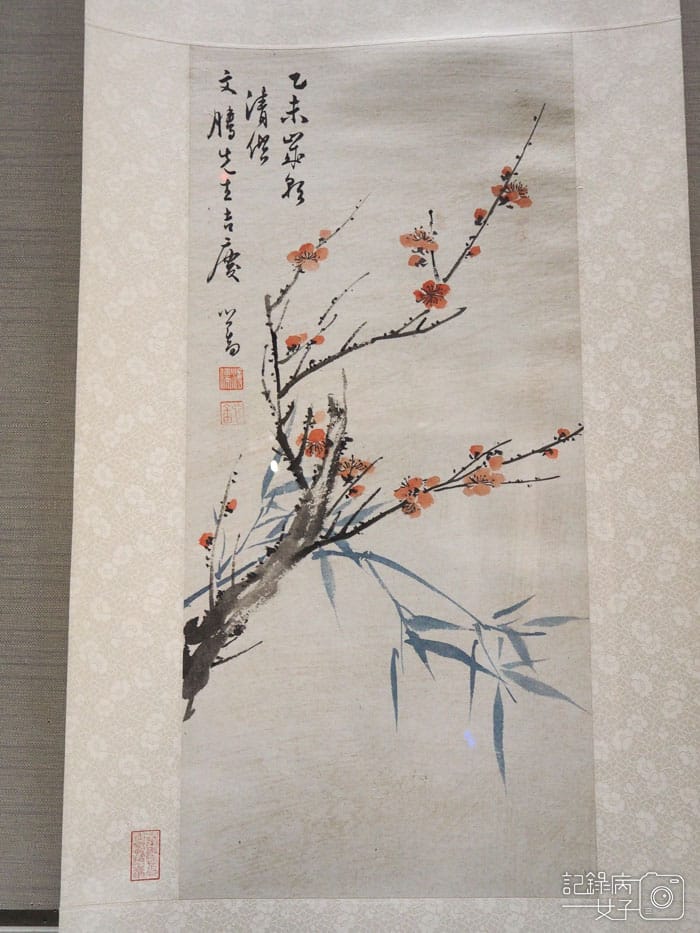 乙未歲朝
清供
文鵬先生吉慶
心畬
記錄病
女子